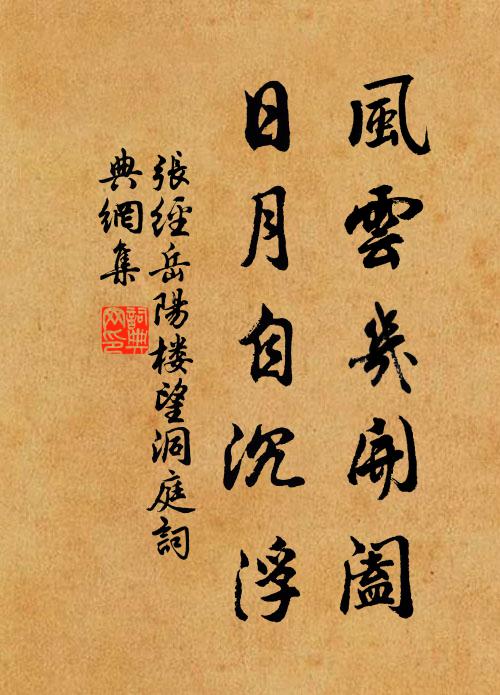 風雲幾開闔
日月自沉浮
張經岳陽楼望洞庭詞
典網集
詞典
网印